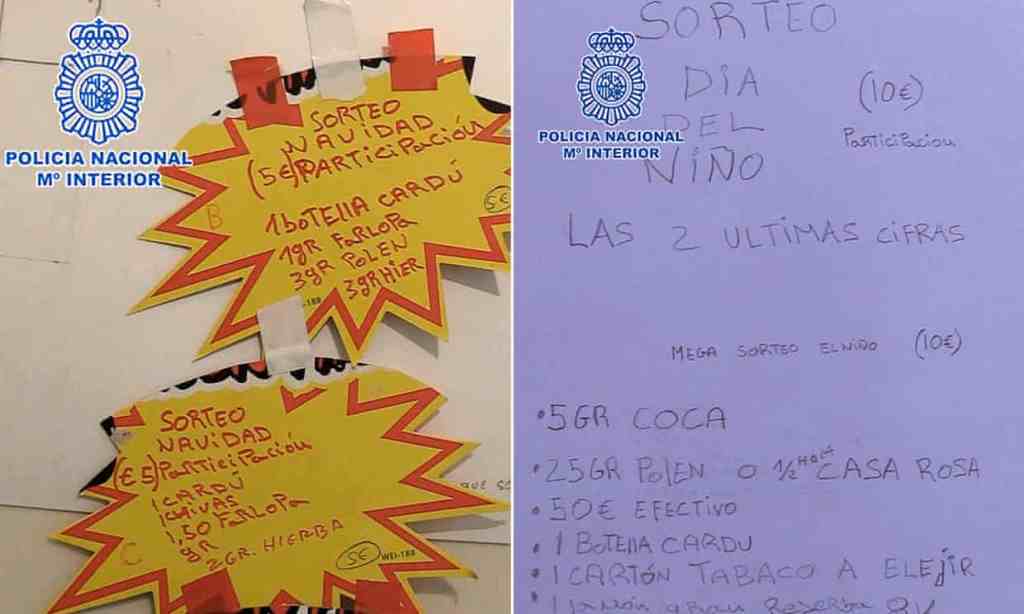 POLICIA NACIONAL
Mº INTERIOR
SORTEO
NAVIDAD
(5€) PARTICIPACIÓN
1 botella CARDÚ
5€
1gR FARLOPA
3gR POLEN
3gR HIER
B
-188
SORTEO
NAVIDAD
(€5) PARTICIPACIÓN
1 CARDÚ
1 CHIVAS
1,50 FARLOPA
gR
2 GR. HIERBA
C
5€
WEI-188
QUE SO
POLICIA NACIONAL
Mº INTERIOR
SORTEO
DIA
DEL
NIÑO
(10€)
PARTICIPACION
LAS 2 ULTIMAS CIFRAS
MEGA SORTEO EL NIÑO (10€)
•5GR COCA
•25GR POLEN O 1/2 CASA ROSA
•50€ EFECTIVO
•1 BOTELLA CARDU
•1 CARTÓN TABACO A ELEJIR